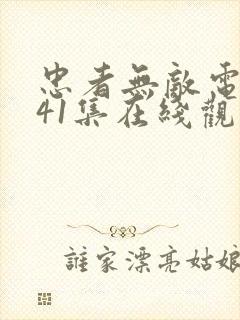 忠者無敵電
41集在綫觀
誰家漂亮姑娘